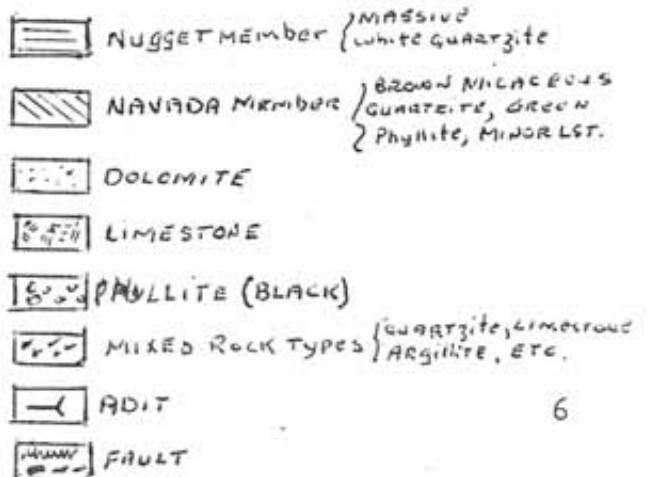 NUGGET MEMBER { MASSIVE
WHITE QUARTZITE
NAVADA MEMBER { BROWN MICACEOUS
QUARTZITE, GREEN
Phyllite, MINOR LST.
DOLOMITE
LIMESTONE
PHYLLITE (BLACK)
MIXED ROCK TYPES { QUARTZITE, LIMESTONE
ARGILLITE, ETC.
ADIT
6
FAULT